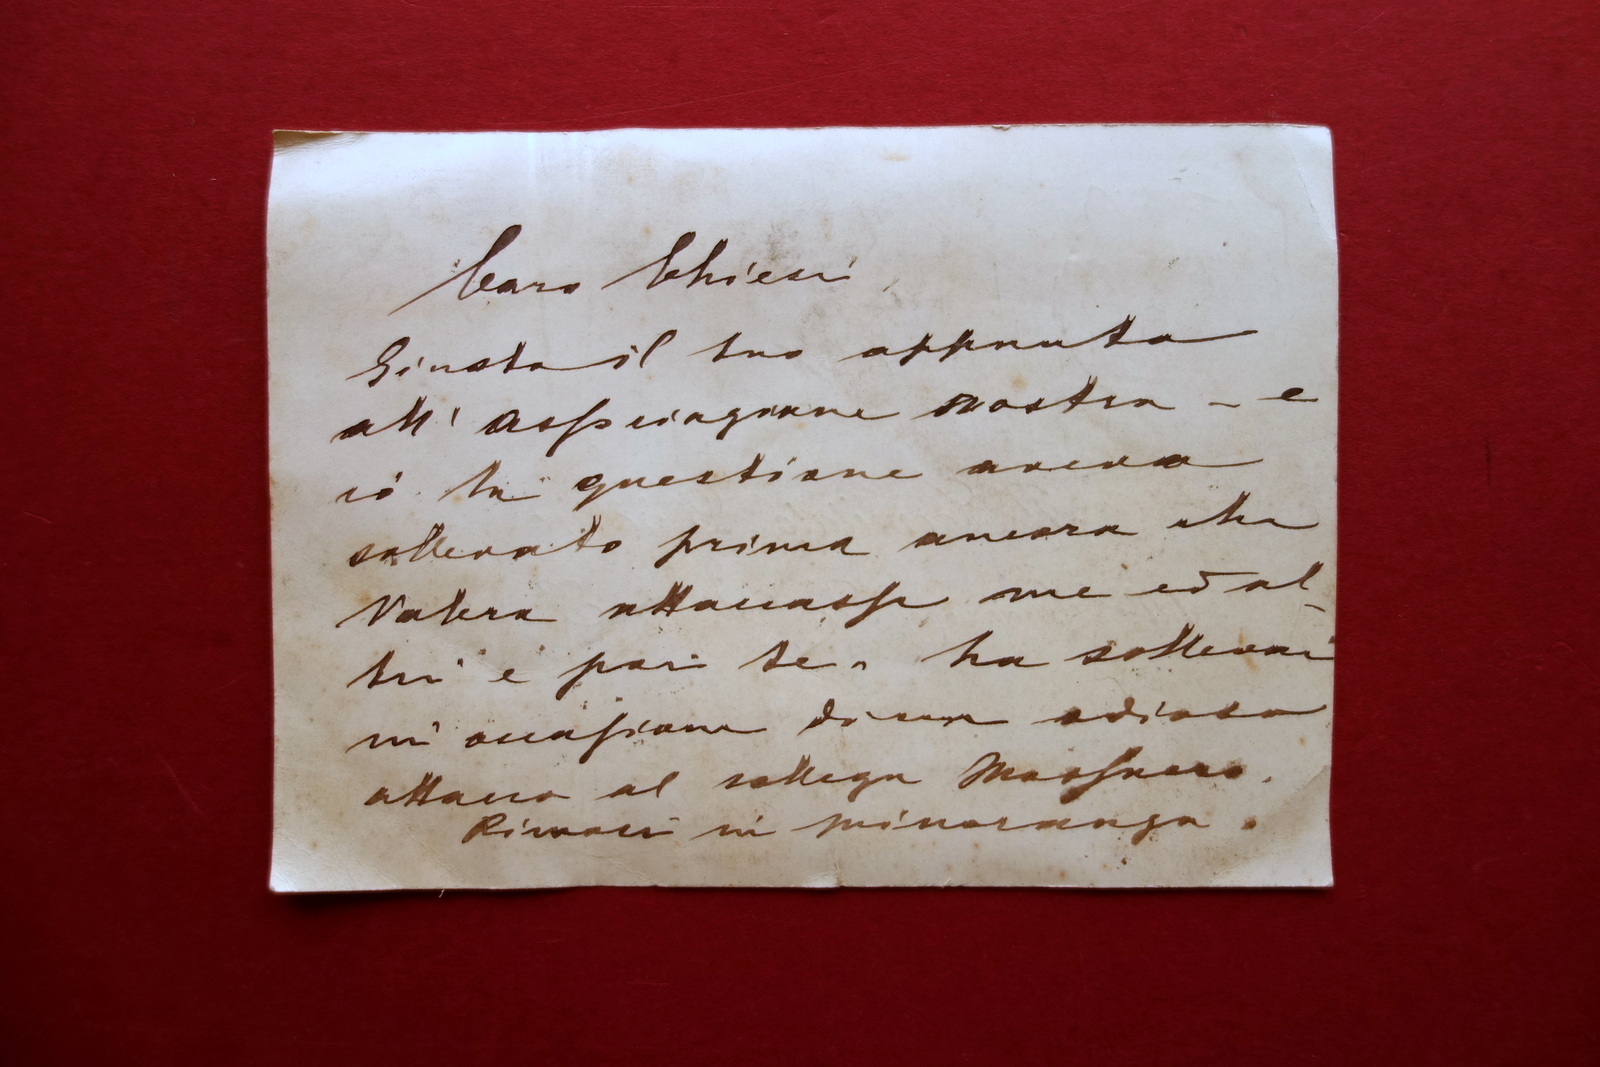 Caro Chiesi
Giusto il tuo appunto
all' Associazione nostra - e
io la questione aveva
sollevato prima ancora che
Valera attaccasse me ed al-
tri e poi te. La sollevai
in occasione di un odioso
attacco al collega
Rimasi in minoranza.